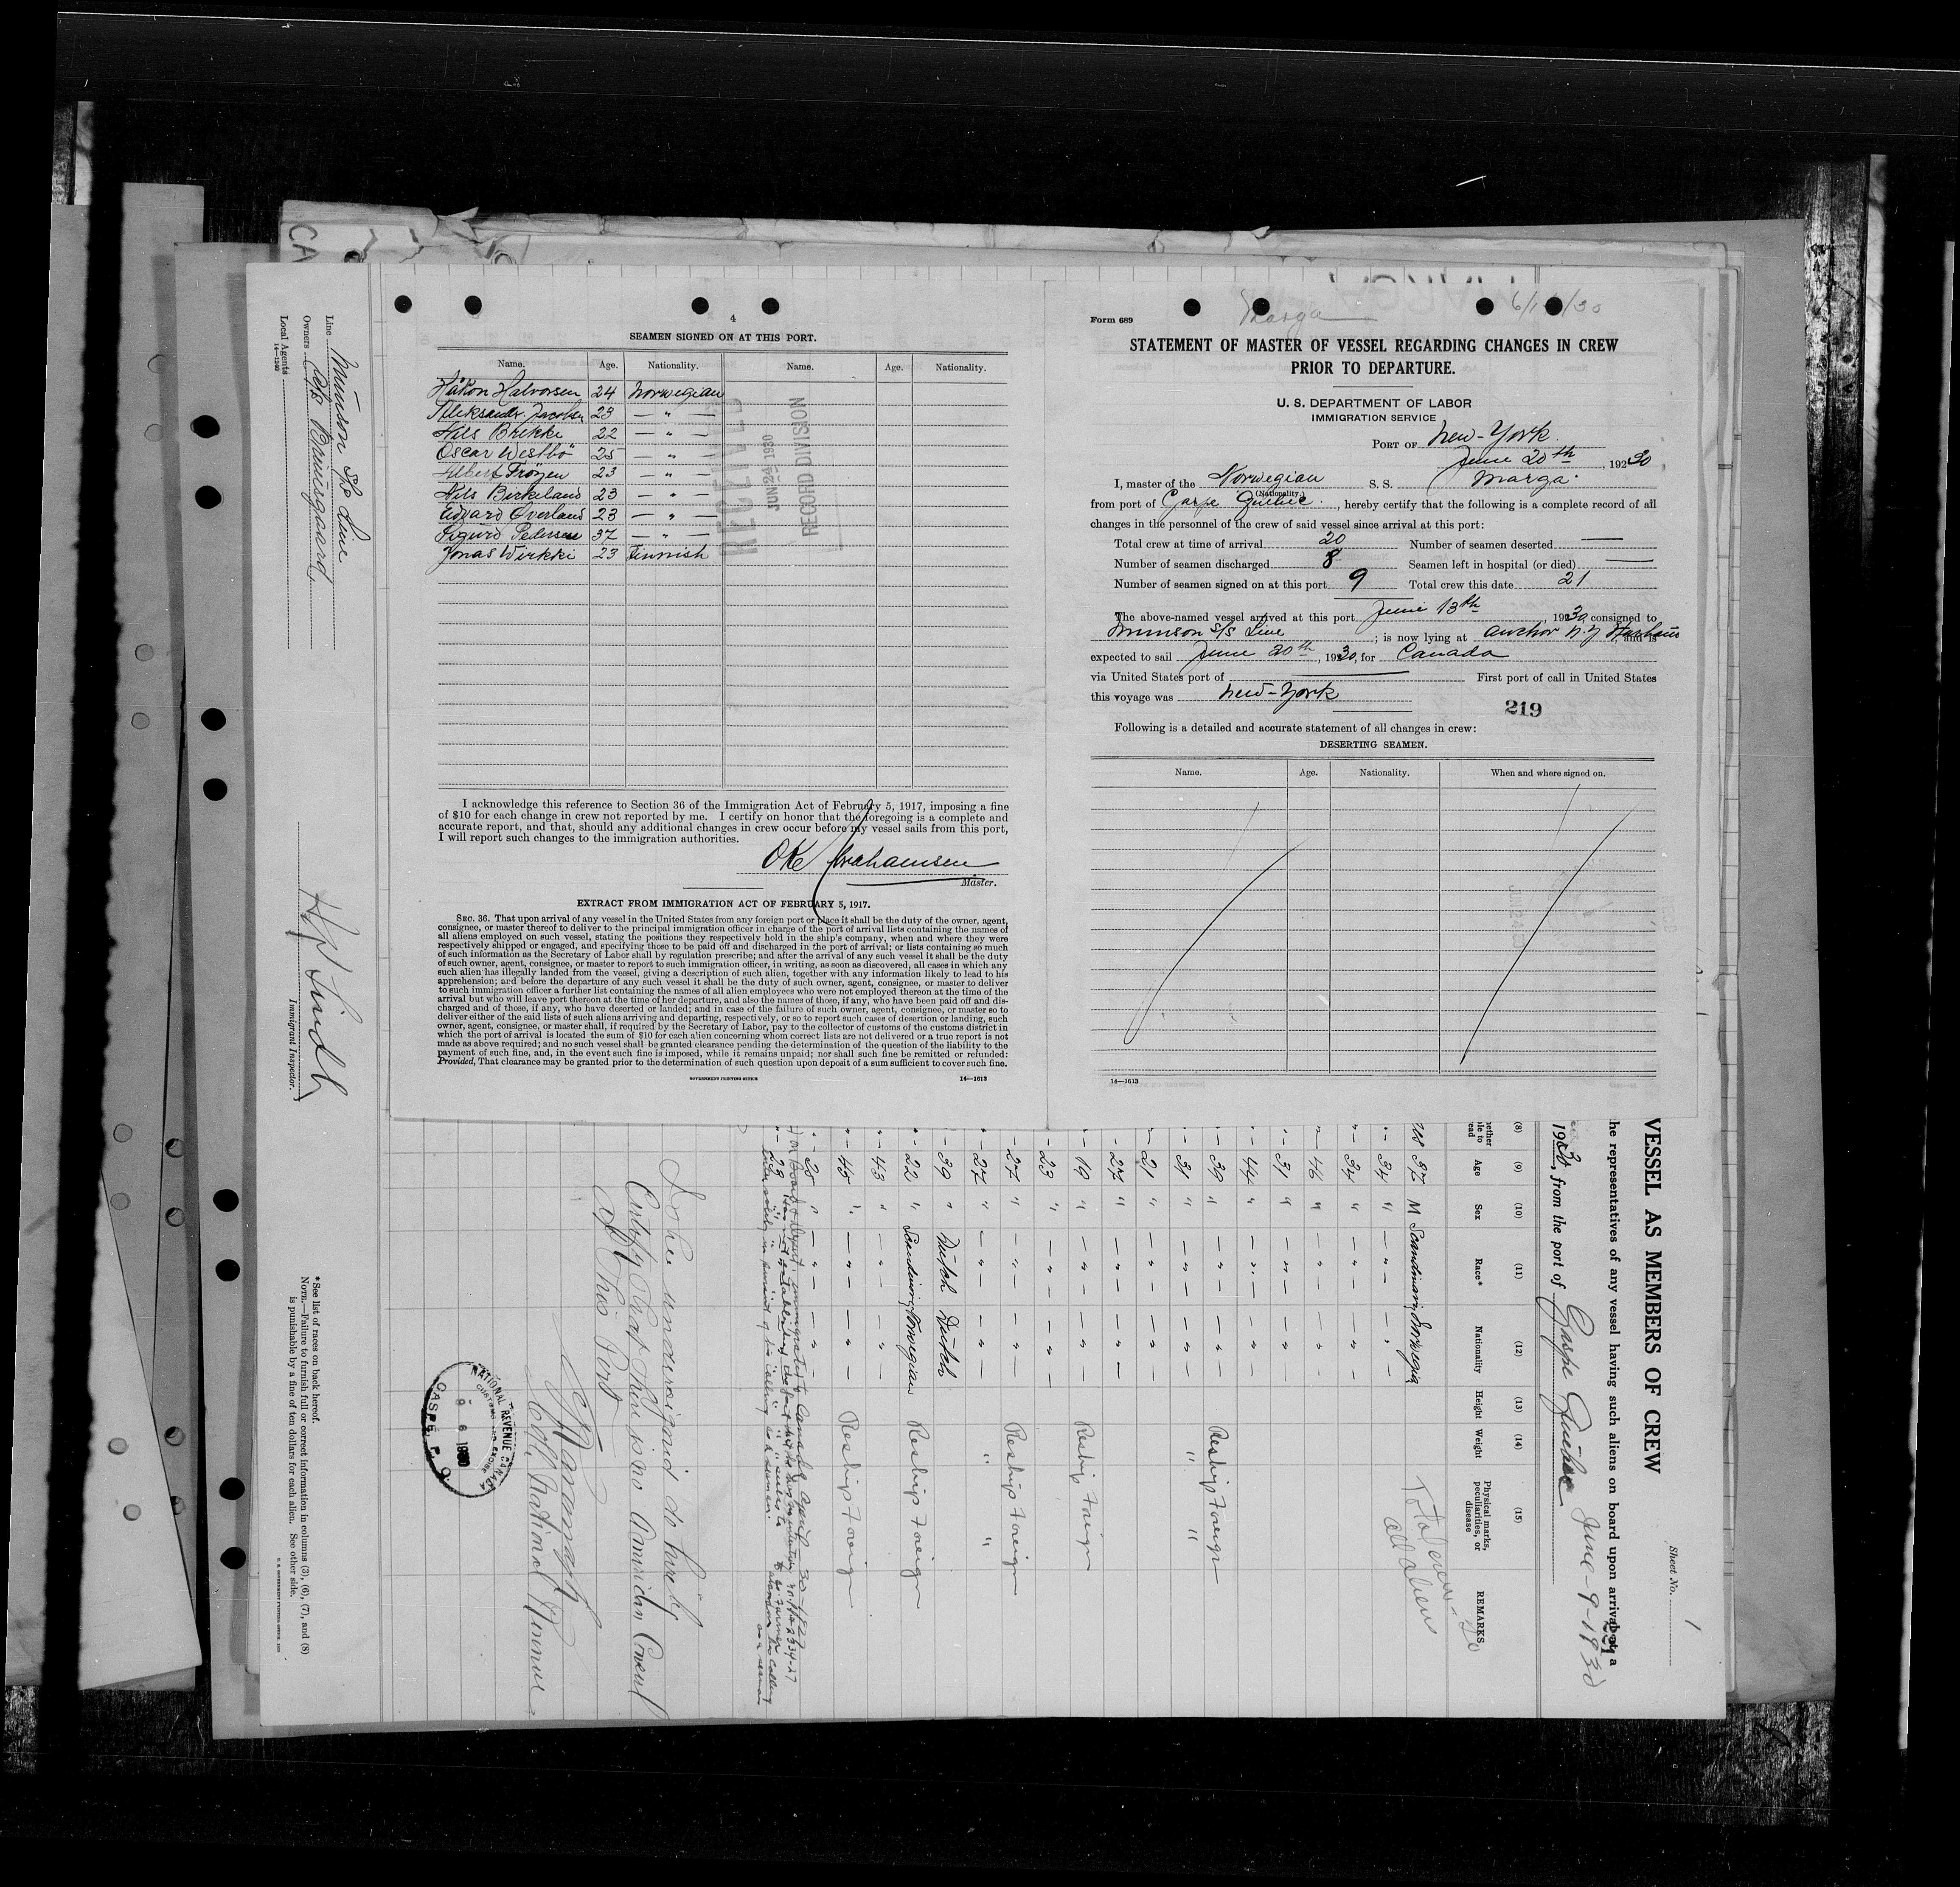 4
SEAMEN SIGNED ON AT THIS PORT.
Name. Age. Nationality. Name. Age. Nationality.
Håkon Halvorsen 24 Norwegian
Jacobsen 23 — " —
Nils Brekke 22 — " —
Oscar Westbö 25 — " —
Albert Fröyen 23 — " —
Nils Birkeland 23 — " —
Edvard Överland 23 — " —
Sigurd Pedersen 37 — " —
Jonas Wirkki 23 Finnish
RECEIVED
JUN 24 1930
RECORD DIVISION
I acknowledge this reference to Section 36 of the Immigration Act of February 5, 1917, imposing a fine
of $10 for each change in crew not reported by me. I certify on honor that the foregoing is a complete and
accurate report, and that, should any additional changes in crew occur before my vessel sails from this port,
I will report such changes to the immigration authorities.
Abrahamsen
Master.
EXTRACT FROM IMMIGRATION ACT OF FEBRUARY 5, 1917.
SEC. 36. That upon arrival of any vessel in the United States from any foreign port or place it shall be the duty of the owner, agent,
consignee, or master thereof to deliver to the principal immigration officer in charge of the port of arrival lists containing the names of
all aliens employed on such vessel, stating the positions they respectively hold in the ship's company, when and where they were
respectively shipped or engaged, and specifying those to be paid off and discharged in the port of arrival; or lists containing so much
of such information as the Secretary of Labor shall by regulation prescribe; and after the arrival of any such vessel it shall be the duty
of such owner, agent, consignee, or master to report to such immigration officer, in writing, as soon as discovered, all cases in which any
such alien has illegally landed from the vessel, giving a description of such alien, together with any information likely to lead to his
apprehension; and before the departure of any such vessel it shall be the duty of such owner, agent, consignee, or master to deliver
to such immigration officer a further list containing the names of all alien employees who were not employed thereon at the time of the
arrival but who will leave port thereon at the time of her departure, and also the names of those, if any, who have been paid off and dis-
charged and of those, if any, who have deserted or landed; and in case of the failure of such owner, agent, consignee, or master so to
deliver either of the said lists of such aliens arriving and departing, respectively, or so to report such cases of desertion or landing, such
owner, agent, consignee, or master shall, if required by the Secretary of Labor, pay to the collector of customs of the customs district in
which the port of arrival is located the sum of $10 for each alien concerning whom correct lists are not delivered or a true report is not
made as above required; and no such vessel shall be granted clearance pending the determination of the question of the liability to the
payment of such fine, and, in the event such fine is imposed, while it remains unpaid; nor shall such fine be remitted or refunded:
Provided, That clearance may be granted prior to the determination of such question upon deposit of a sum sufficient to cover such fine.
GOVERNMENT PRINTING OFFICE 14—1613
Form 689
Marga
STATEMENT OF MASTER OF VESSEL REGARDING CHANGES IN CREW
PRIOR TO DEPARTURE.
U. S. DEPARTMENT OF LABOR
IMMIGRATION SERVICE
PORT OF New-York
June 20th, 19230
I, master of the Norwegian S. S. Marga
(Nationality.)
from port of Gaspe Quebec, hereby certify that the following is a complete record of all
changes in the personnel of the crew of said vessel since arrival at this port:
Total crew at time of arrival 20 Number of seamen deserted —
Number of seamen discharged 8 Seamen left in hospital (or died) —
Number of seamen signed on at this port 9 Total crew this date 21
The above-named vessel arrived at this port June 13th, 19230, consigned to
Munson S/S Line; is now lying at anchor N.Y., and is
expected to sail June 20th, 19230, for Canada
via United States port of — First port of call in United States
this voyage was New-York
219
Following is a detailed and accurate statement of all changes in crew:
DESERTING SEAMEN.
Name. Age. Nationality. When and where signed on.
14—1613
Line Munson SS Line
Owners
Local Agents
14-1240
Immigrant Inspector.
*See list of races on back hereof.
NOTE.—Failure to furnish full or correct information in columns (3), (6), (7), and (8)
is punishable by a fine of ten dollars for each alien. See other side.
Sheet No. 1
VESSEL AS MEMBERS OF CREW
the representatives of any vessel having such aliens on board upon arrival at a
1930, from the port of Gaspe Quebec June-9-1930
(8) (9) (10) (11) (12) (13) (14) (15)
Age Sex Race* Nationality Height Weight Physical marks, peculiarities, or disease REMARKS
37 M Scandinavian Norwegian
34 " — " — — " —
34
46
31
44
39 Reship Foreign
31 " "
21
27
19 Reship Foreign
23
27 Reship Foreign
27 " "
39 " Dutch Dutch
22 " Scandinavian Norwegian Reship Foreign
43
45 Reship Foreign
Total crew - 20
all alien
I the undersigned do hereby
Certify that there is no American Consul
at This Port
Coll. National Revenue
NATIONAL REVENUE CANADA
CUSTOMS AND EXCISE
9 6 1930
GASPE, P. Q.